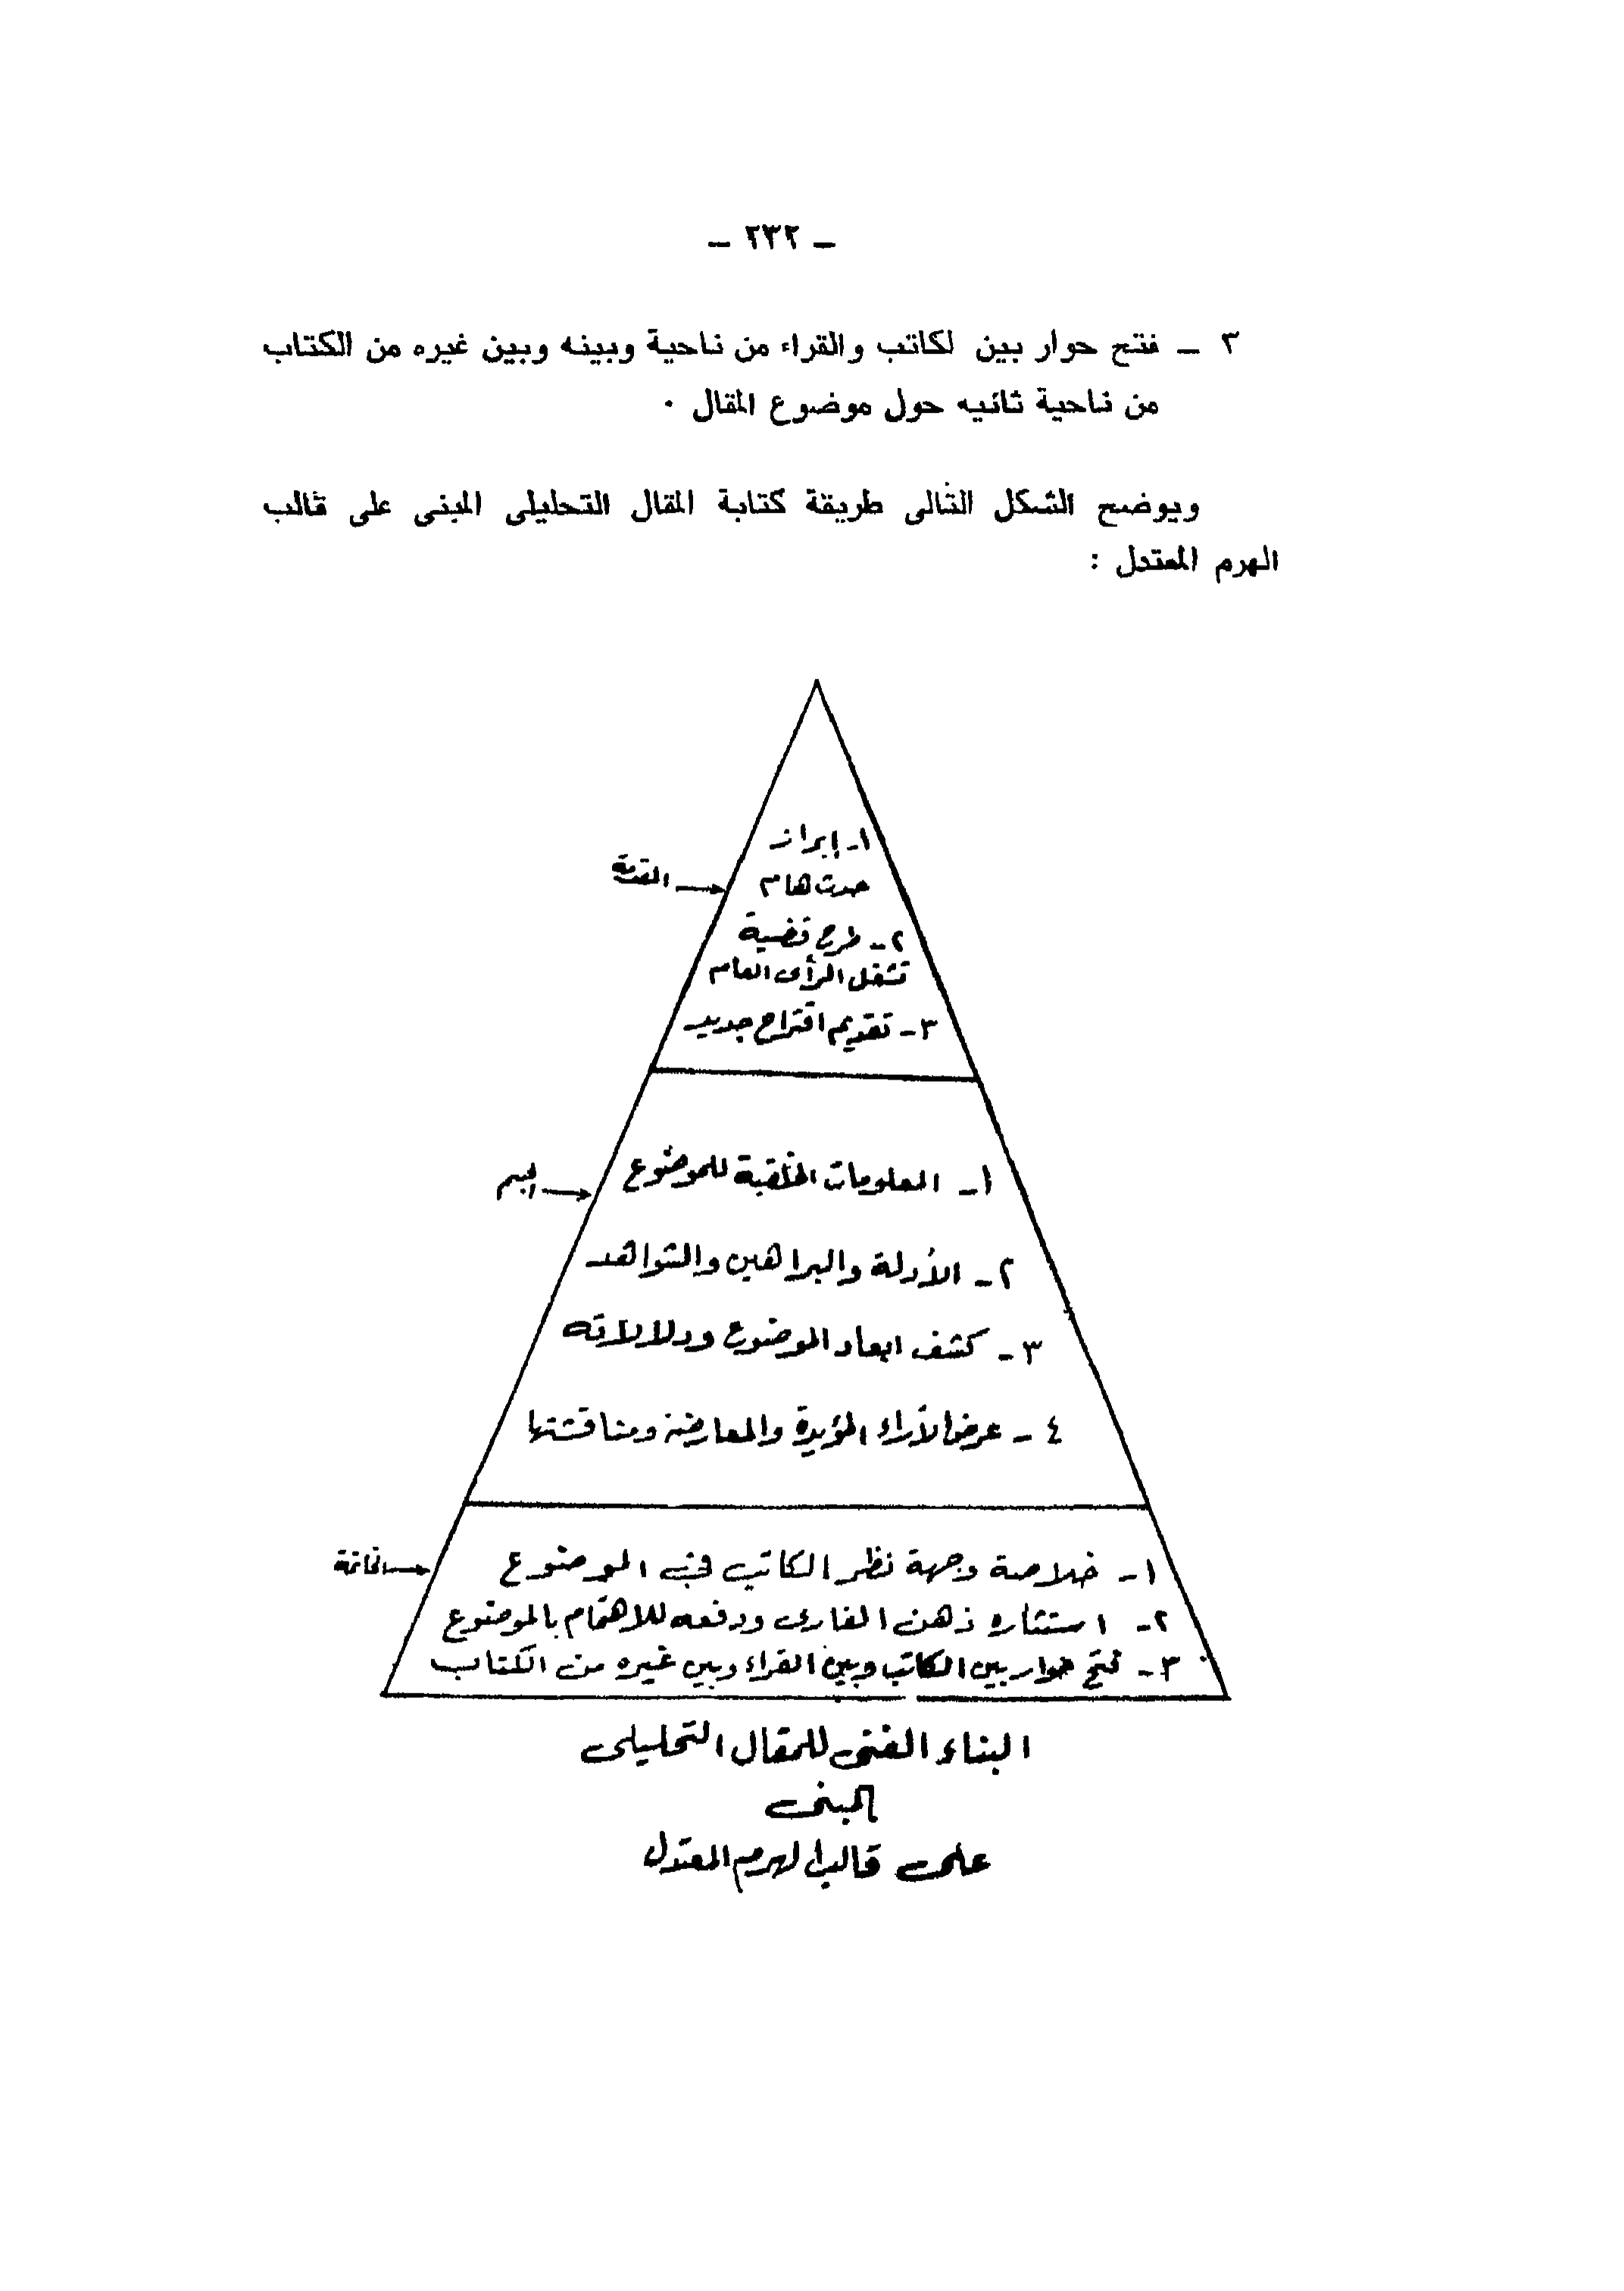 – ٢٣٢ –
٣ – فتح حوار بين لكاتب والقراء من ناحية وبينه وبين غيره من الكتاب
من ناحية ثانيه حول موضوع المقال ·
ويوضح الشكل التالى طريقة كتابة المقال التحليلى المبنى على قالب
الهرم المعتدل :
١- إبراز
حدث هام
المقدمة
٢- طرح قضية
تشغل الرأى العام
٣- تقديم اقتراح جديد
١- المعلومات الخلفية للموضوع
الجسم
٢- الأدلة والبراهين والشواهد
٣- كشف ابعاد الموضوع ودلالاته
٤- عرض الأراء المؤيدة والمعارضة ومناقشتها
١- خلاصة وجهة نظر الكاتب فى الموضوع
الخاتمة
٢- استثاره ذهن القارى ودفعه للاهتمام بالموضوع
٣- فتح حوار بين الكاتب وبين القراء وبين غيره من الكتاب
البناء الفنى للمقال التحليلى
المبنى
على قالب الهرم المعتدل